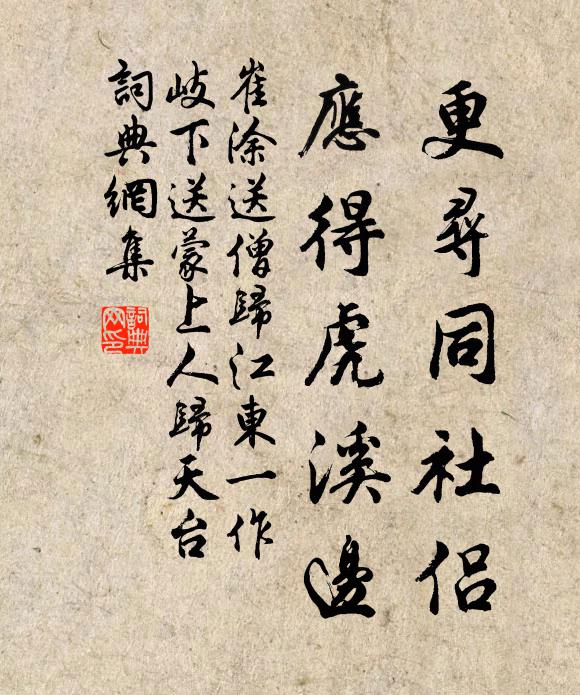 更尋同社侶
應得虎溪邊
崔涂送僧歸江東一作
岐下送蒙上人歸天台
詞典網集
詞典
网印